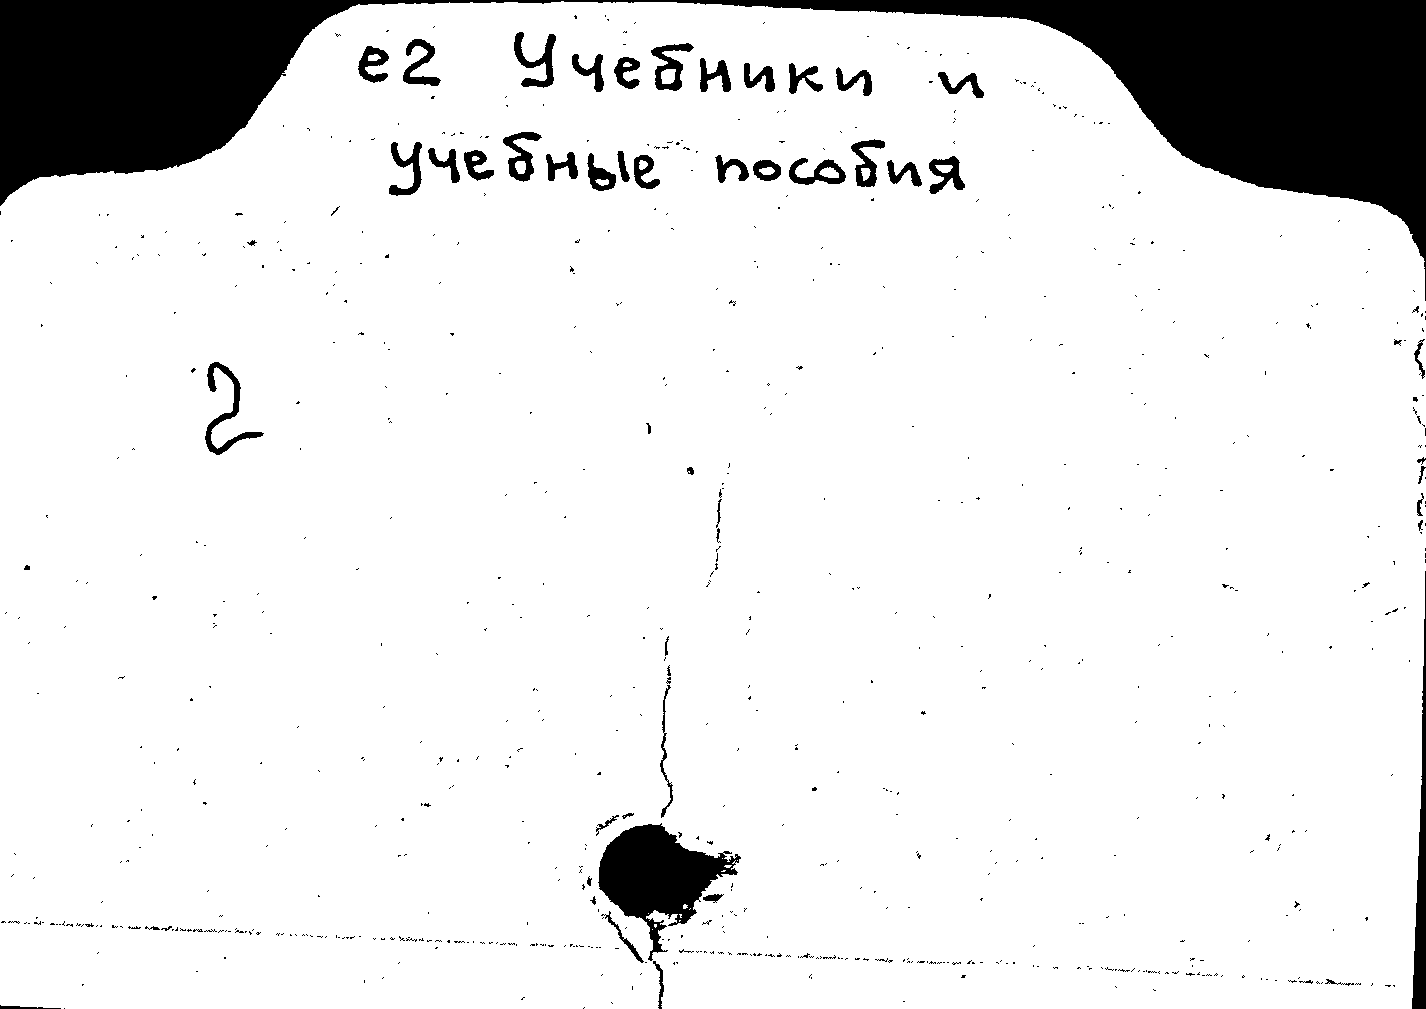 е2 Учебники и
учебные пособия
2